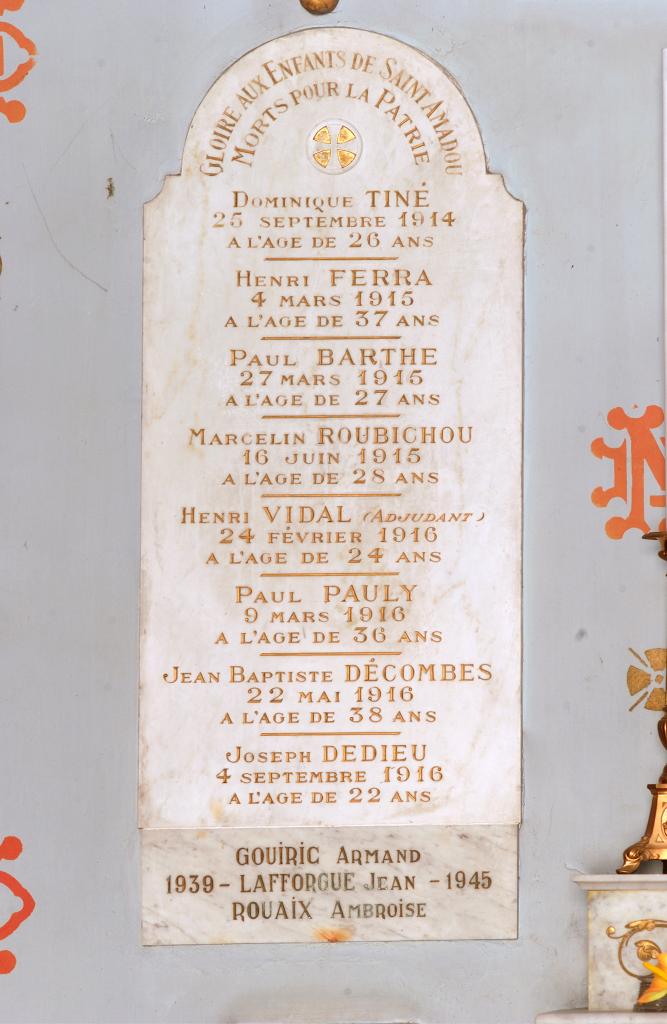 GLOIRE AUX ENFANTS DE SAINT AMADOU
MORTS POUR LA PATRIE
DOMINIQUE TINÉ
25 SEPTEMBRE 1914
A L'AGE DE 26 ANS
HENRI FERRA
4 MARS 1915
A L'AGE DE 37 ANS
PAUL BARTHE
27 MARS 1915
A L'AGE DE 27 ANS
MARCELIN ROUBICHOU
16 JUIN 1915
A L'AGE DE 28 ANS
HENRI VIDAL (ADJUDANT)
24 FÉVRIER 1916
A L'AGE DE 24 ANS
PAUL PAULY
9 MARS 1916
A L'AGE DE 36 ANS
JEAN BAPTISTE DÉCOMBES
22 MAI 1916
A L'AGE DE 38 ANS
JOSEPH DEDIEU
4 SEPTEMBRE 1916
A L'AGE DE 22 ANS
GOUIRIC ARMAND
1939 - LAFFORGUE JEAN - 1945
ROUAIX AMBROISE